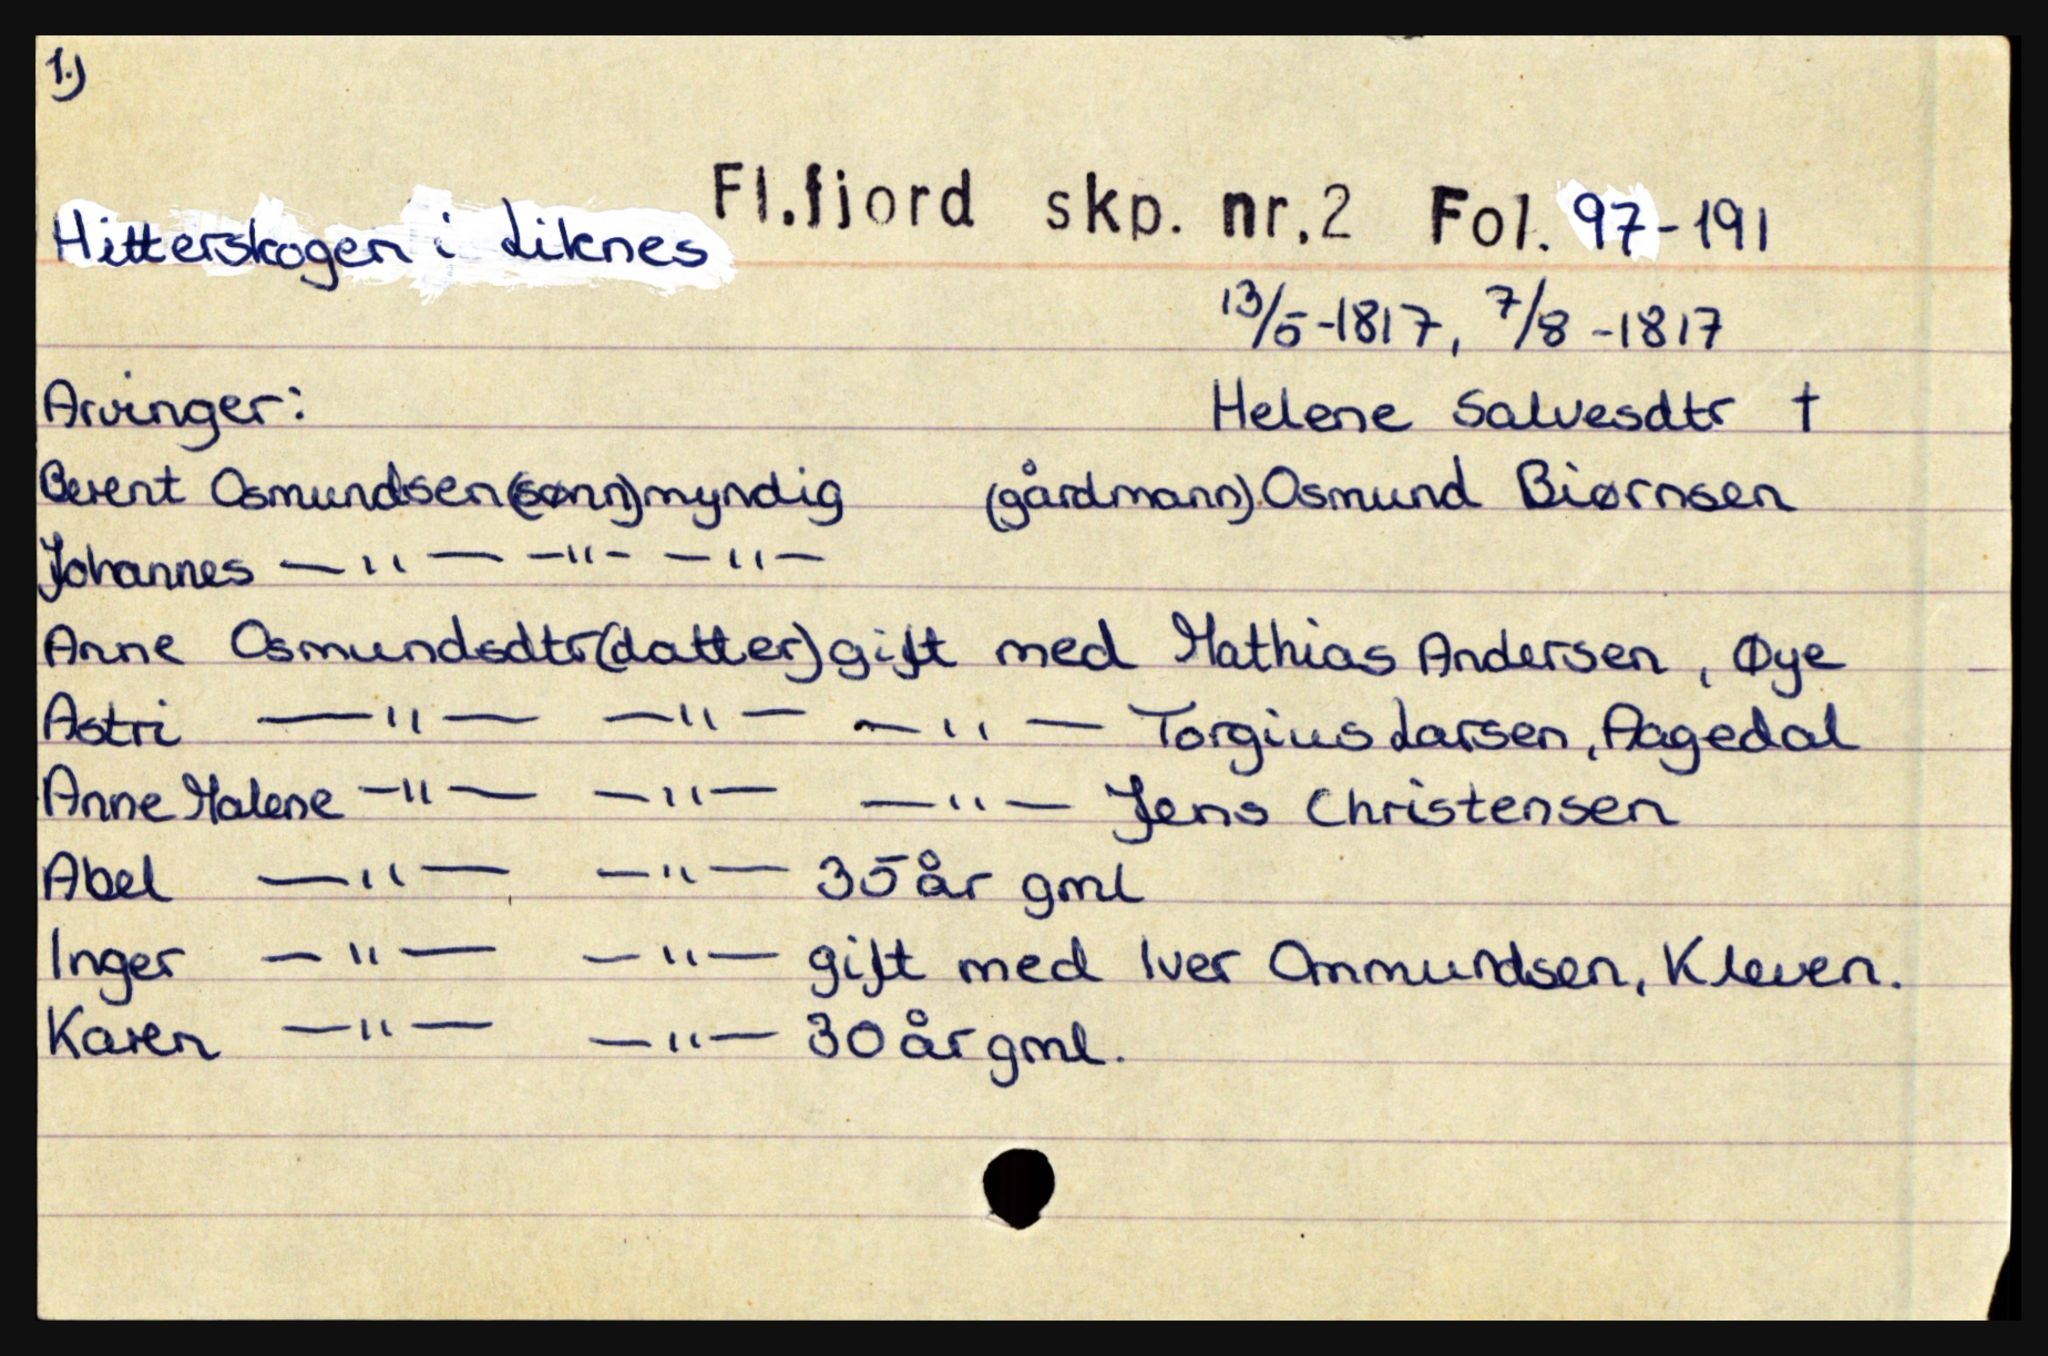 1.)
Fl.fjord skp. nr.2 Fol. 97-191
Hitterskogen i Liknes
13/5-1817, 7/8-1817
Arvinger: Helene Salvesdtr †
Berent Osmundsen (sønn) myndig (gårdmann) Osmund Biørnsen
Johannes —"— —"— —"—
Anne Osmundsdtr (datter) gift med Mathias Andersen, Øye
Astri —"— —"— —"— Torgius Larsen, Aagedal
Anne Malene —"— —"— —"— Jens Christensen
Abel —"— —"— 35 år gml
Inger —"— —"— gift med Iver Ommundsen, Kleven.
Karen —"— —"— 30 år gml.